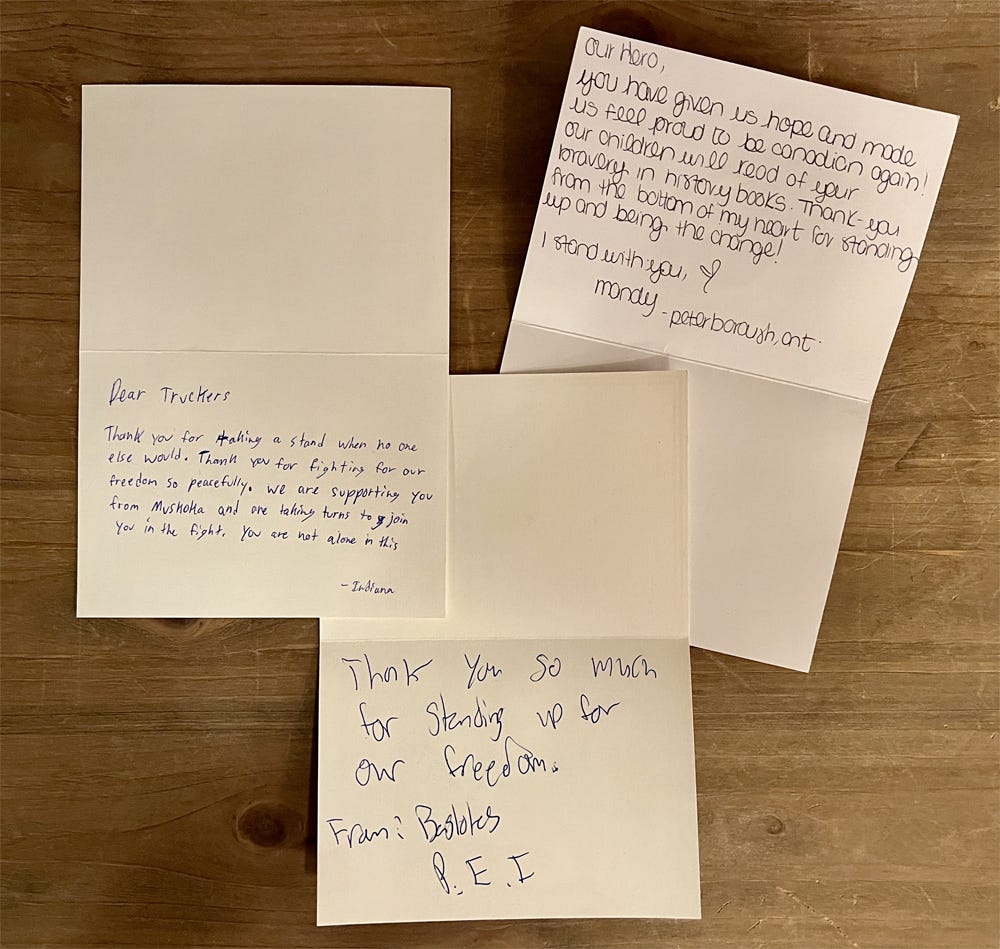 Dear Truckers
Thank you for taking a stand when no one
else would. Thank you for fighting for our
freedom so peacefully. We are supporting you
from Muskoka and are taking turns to join
you in the fight. You are not alone in this
- Indiana
our Hero,
you have given us hope and made
us feel proud to be canadian again!
our children will read of your
bravery in history books. Thank-you
from the bottom of my heart for standing
up and being the change!
I stand with you, ♡
mandy - peterborough, ont.
Thank You So much
for Standing up for
our freedom.
From:
P.E.I